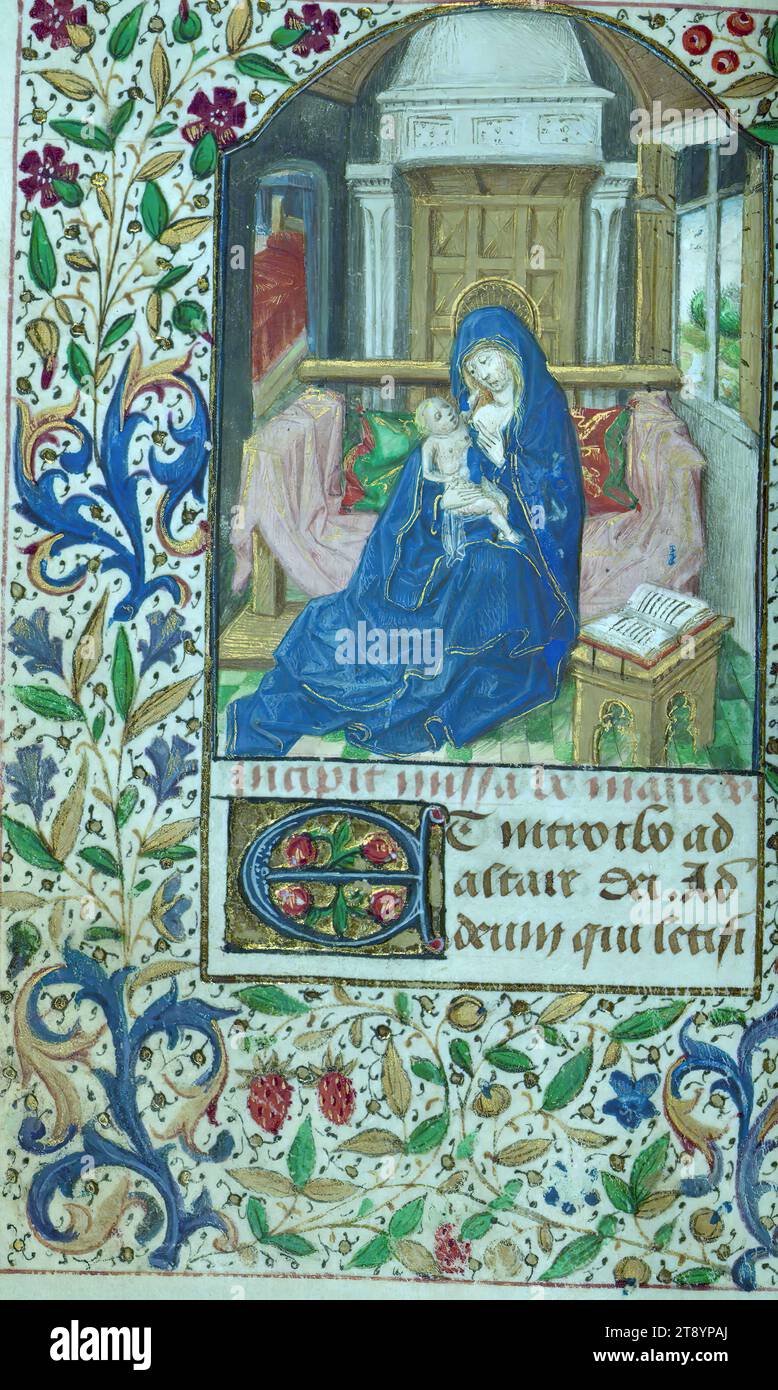 Incipit missa be marie v
Et introibo ad
altare dei. Ad
deum qui letifi
alamy
Image ID: 2T8YPAJ
www.alamy.com